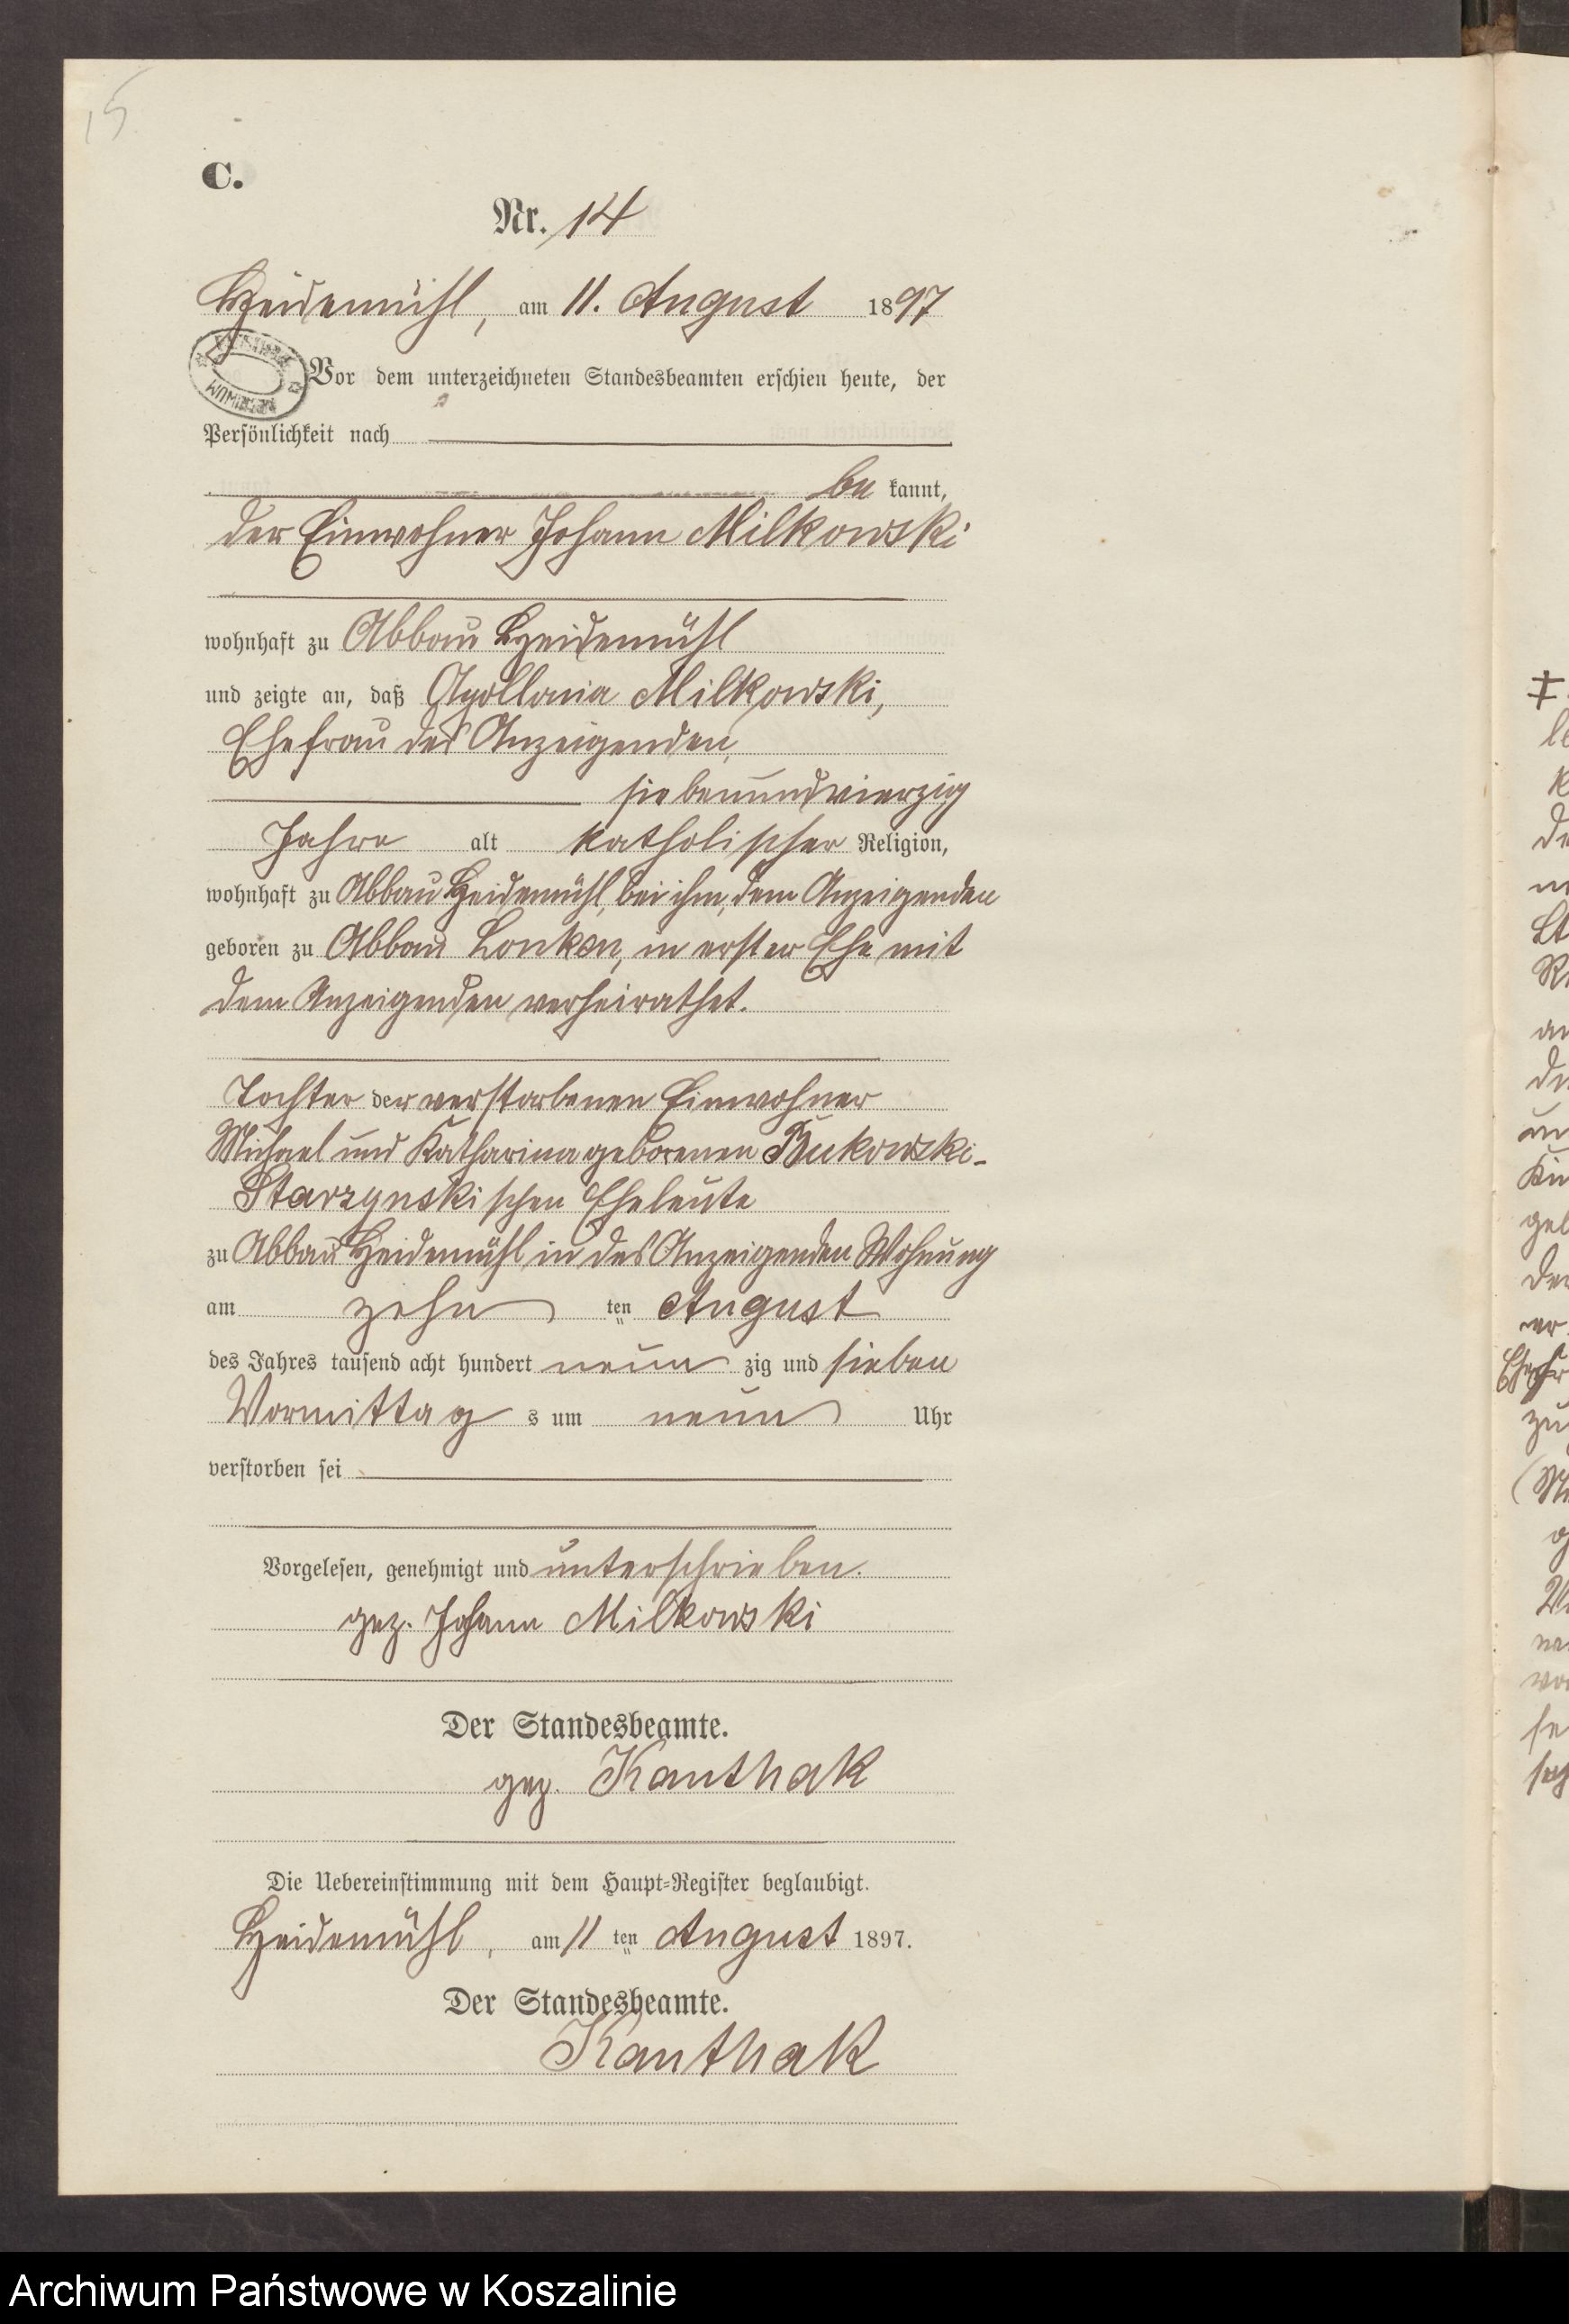 15
C.
Nr. 14
Heidemühl, am 11. August 1897
Vor dem unterzeichneten Standesbeamten erschien heute, der
Persönlichkeit nach
be kannt,
der Einwohner Johann Milkowski
wohnhaft zu Abbau Heidemühl
und zeigte an, daß Apollonia Milkowski,
Ehefrau des Anzeigenden,
siebenundvierzig
Jahre alt katholischer Religion,
wohnhaft zu Abbau Heidemühl, bei ihm, dem Anzeigenden
geboren zu Abbau Lonken, in erster Ehe mit
dem Anzeigenden verheirathet.
Tochter der verstorbenen Einwohner
Michael und Katharina geborenen Bukowski-
Starzynskischen Eheleute
zu Abbau Heidemühl in des Anzeigenden Wohnung
am zehn ten August
des Jahres tausend acht hundert neun zig und sieben
Vormittag s um neun Uhr
verstorben sei
Vorgelesen, genehmigt und unterschrieben.
gez. Johann Milkowski
Der Standesbeamte.
gez. Kanthak
Die Uebereinstimmung mit dem Haupt-Register beglaubigt.
Heidemühl, am 11 ten August 1897.
Der Standesbeamte.
Kanthak
Archiwum Państwowe w Koszalinie